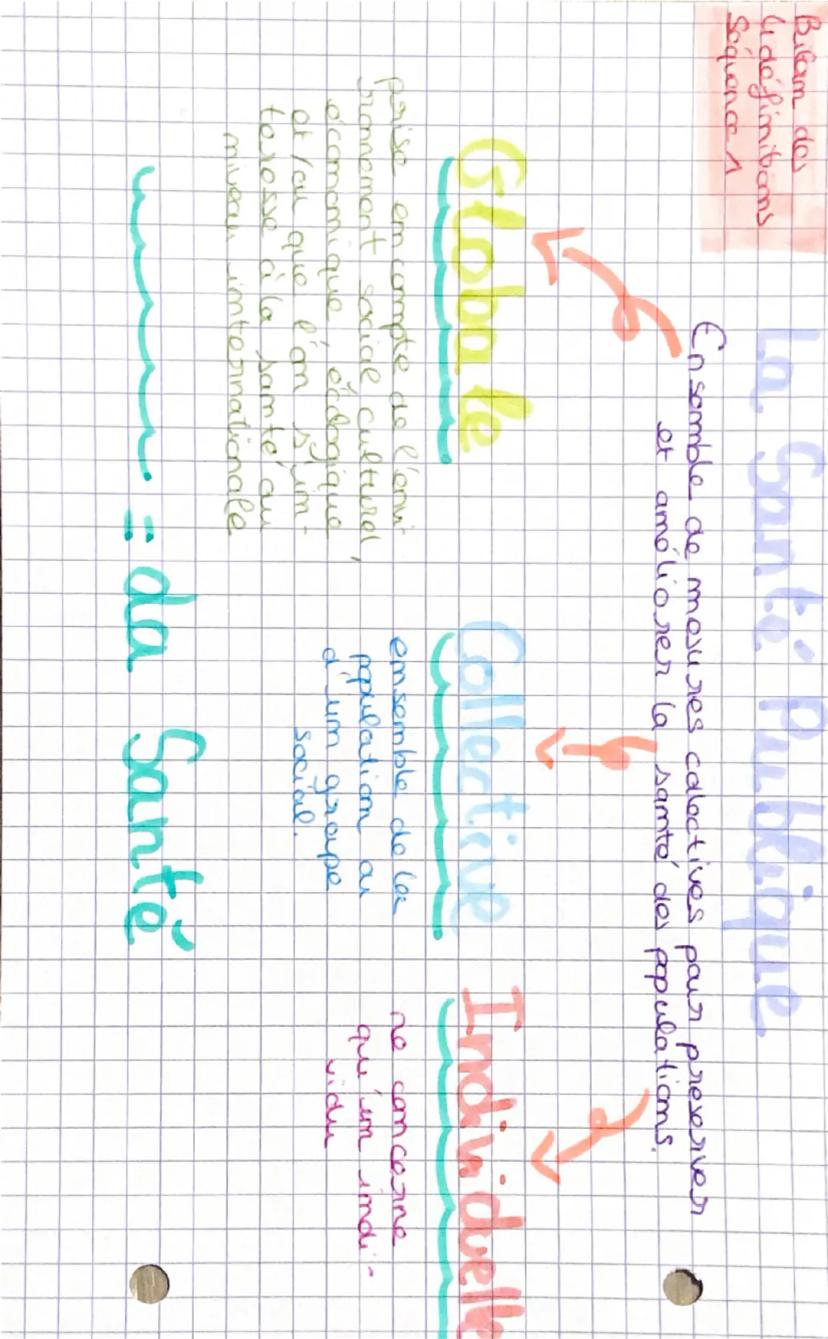 Bilan des
4 définitions
séquence 1
La Santé Publique
Ensemble de mesures colectives pour preserver
et améliorer la santé des populations.
Globale
Collective
Individuelle
prise en compte de l'envi
ronnement social, culturel,
économique, écologique
et/ou que l'on s'in-
teresse à la santé au
niveau internationale
ensemble de la
population ou
d'un groupe
social.
ne concerne
qu'un indi-
vidu
= la Santé